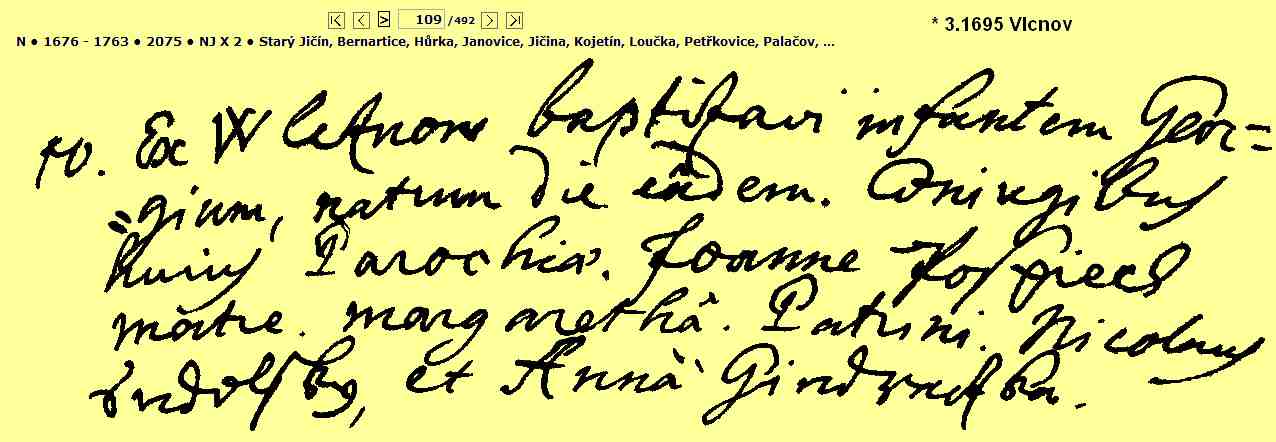 109 /492
* 3.1695 Vlcnov
N ● 1676 - 1763 ● 2075 ● NJ X 2 ● Starý Jičín, Bernartice, Hůrka, Janovice, Jičina, Kojetín, Loučka, Petřkovice, Palačov, ...
10. Ex Wlcknow baptisavi infantem Geor=
=gium, natum die eâdem. Conjugibus
huius Parochiæ. Joanne Pospiech
matre. margarethâ. Patrini. Nicolaus
et Anna